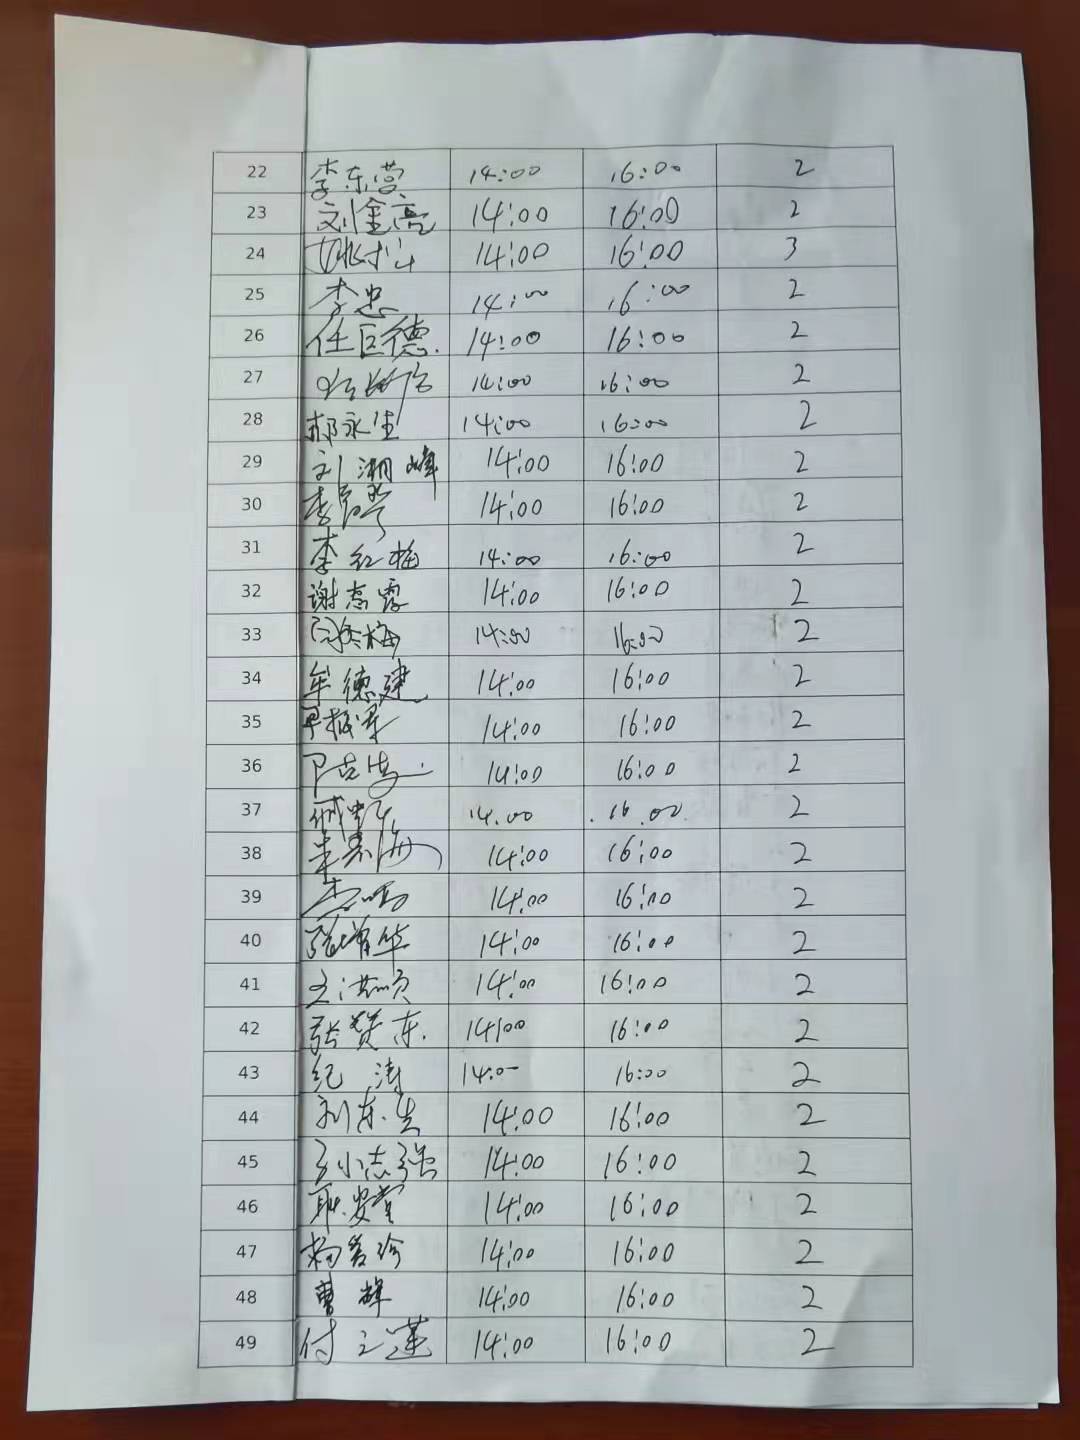 22 李东营 14:00 16:00 2
23 刘金亮 14:00 16:00 2
24 14:00 16:00 3
25 李忠 14:00 16:00 2
26 任巨德. 14:00 16:00 2
27 14:00 16:00 2
28 郝永生 14:00 16:00 2
29 刘湘峰 14:00 16:00 2
30 14:00 16:00 2
31 李红梅 14:00 16:00 2
32 谢志霞 14:00 16:00 2
33 14:00 16:00 2
34 牟德建 14:00 16:00 2
35 14:00 16:00 2
36 14:00 16:00 2
37 14.00 16.00 2
38 14:00 16:00 2
39 14:00 16:00 2
40 张增华 14:00 16:00 2
41 王洪顺 14:00 16:00 2
42 张赞东. 14:00 16:00 2
43 纪涛 14:00 16:00 2
44 刘东生 14:00 16:00 2
45 14:00 16:00 2
46 耿安堂 14:00 16:00 2
47 杨爱珍 14:00 16:00 2
48 曹辉 14:00 16:00 2
49 付之莲 14:00 16:00 2